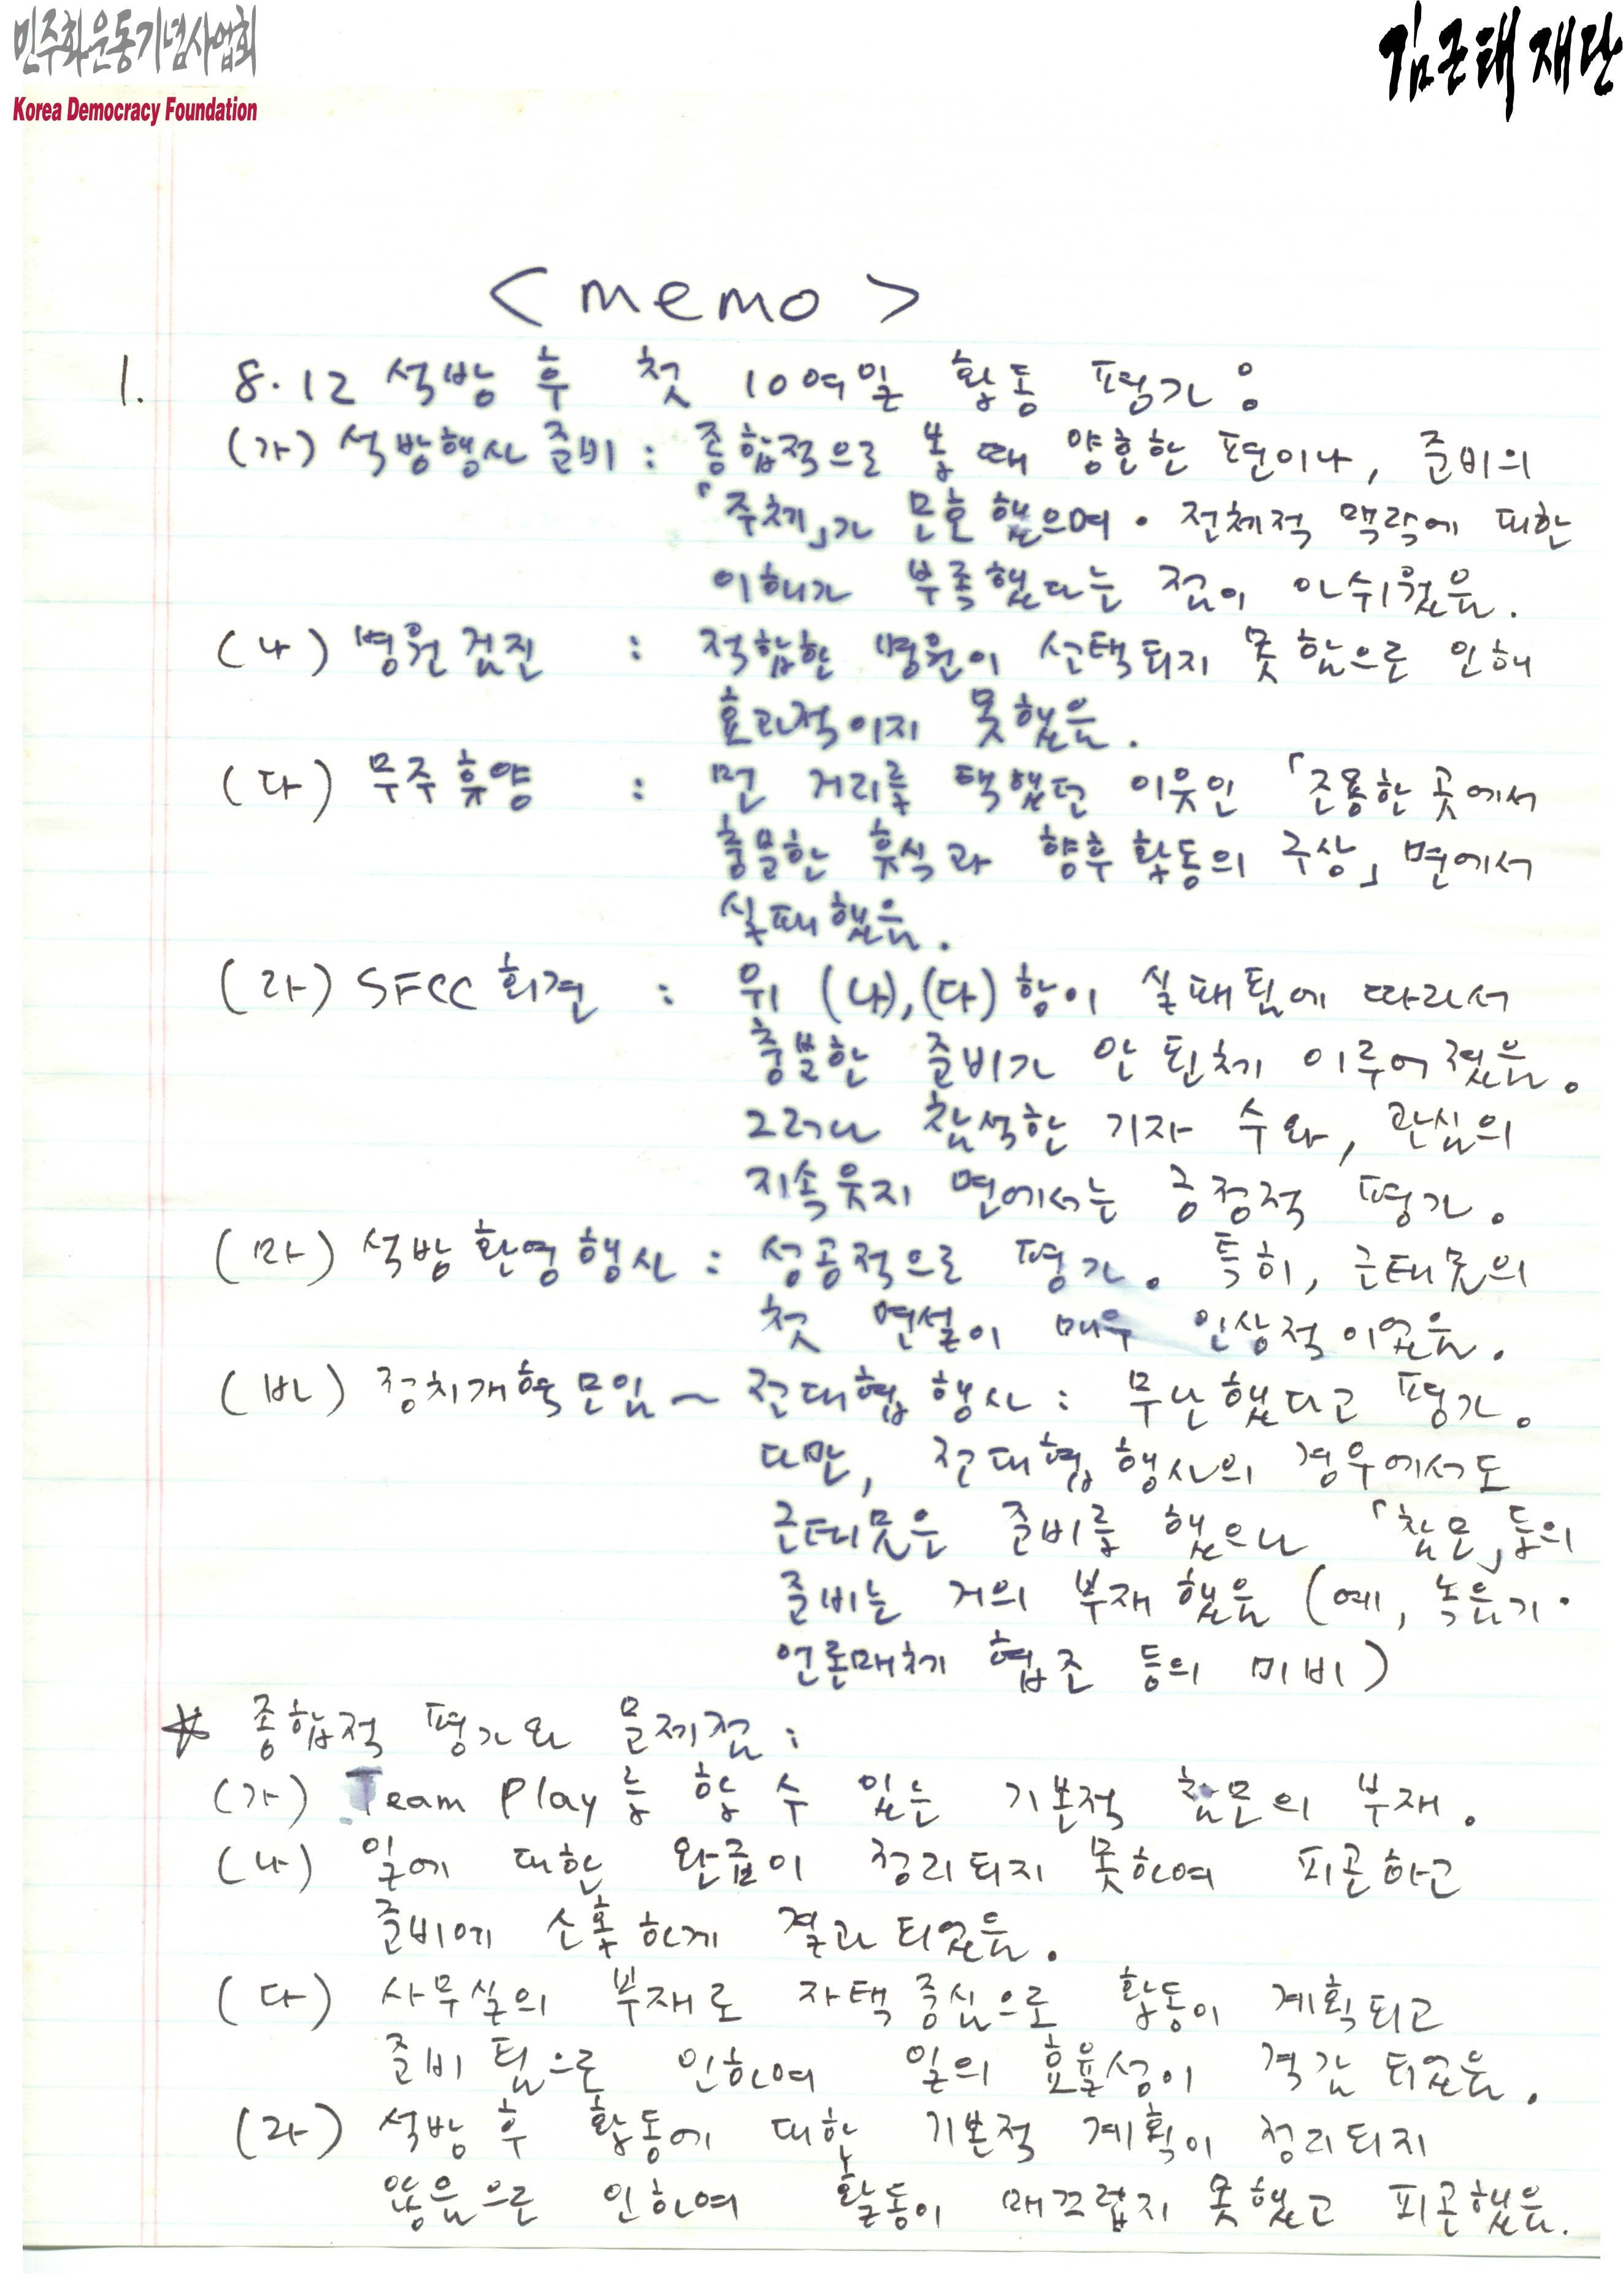 민주화운동기념사업회
Korea Democracy Foundation
김근태 재단
< memo >
1. 8.12 석방 후 첫 10여일 활동 평가 :
(가) 석방행사 준비 : 종합적으로 볼 때 양호한 편이나, 준비의
「주체」가 모호했으며 · 전체적 맥락에 대한
이해가 부족했다는 점이 아쉬웠음.
(나) 병원 검진 : 적합한 병원이 선택되지 못함으로 인해
효과적이지 못했음.
(다) 무주휴양 : 먼 거리를 택했던 이유인 「조용한 곳에서
충분한 휴식과 향후 활동의 구상」 면에서
실패했음.
(라) SFCC 회견 : 위 (나), (다) 항이 실패됨에 따라서
충분한 준비가 안 된채 이루어졌음.
그러나 참석한 기자 수와, 관심의
지속유지 면에서는 긍정적 평가.
(마) 석방 환영 행사 : 성공적으로 평가. 특히, 근태옷의
첫 연설이 매우 인상적이었음.
(바) 정치개혁모임 ~ 전대협 행사 : 무난했다고 평가.
다만, 전대협 행사의 경우에서도
준비를 했으나 「참모」등의
준비는 거의 부재했음 (예, 녹음기 ·
언론매체 협조 등의 미비)
* 종합적 평가와 문제점 :
(가) Team Play를 할 수 있는 기본적 참모의 부재.
(나) 일에 대한 완급이 정리되지 못하여 피곤하고
준비에 소홀하게 결과되었음.
(다) 사무실의 부재로 자택 중심으로 활동이 계획되고
준비됨으로 인하여 일의 효율성이 격감되었음.
(라) 석방 후 활동에 대한 기본적 계획이 정리되지
않음으로 인하여 활동이 매끄럽지 못했고 피곤했음.